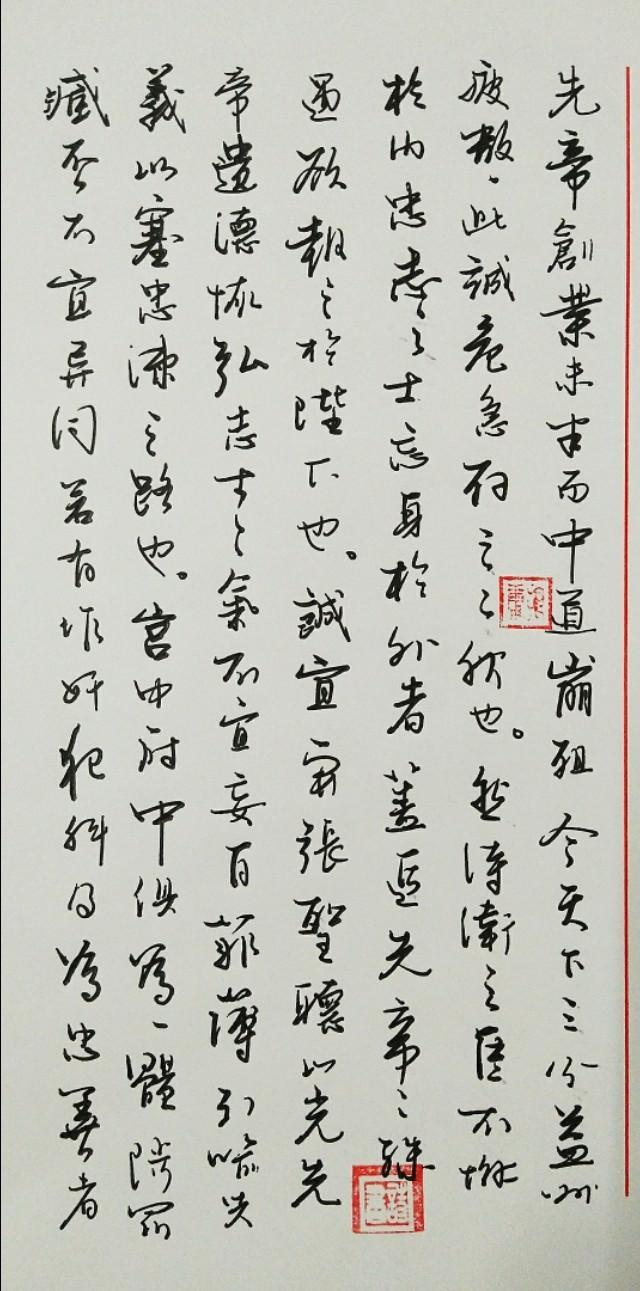 先帝創業未半而中道崩殂今天下三分益州
疲敝、此誠危急存亡之秋也。然侍衛之臣不懈
於內忠志之士忘身於外者蓋追先帝之殊
遇欲報之於陛下也。誠宜開張聖聽以光先
帝遺德恢弘志士之氣不宜妄自菲薄引喻失
義以塞忠諫之路也。宮中府中俱為一體陟罰
臧否不宜異同若有作奸犯科及為忠善者